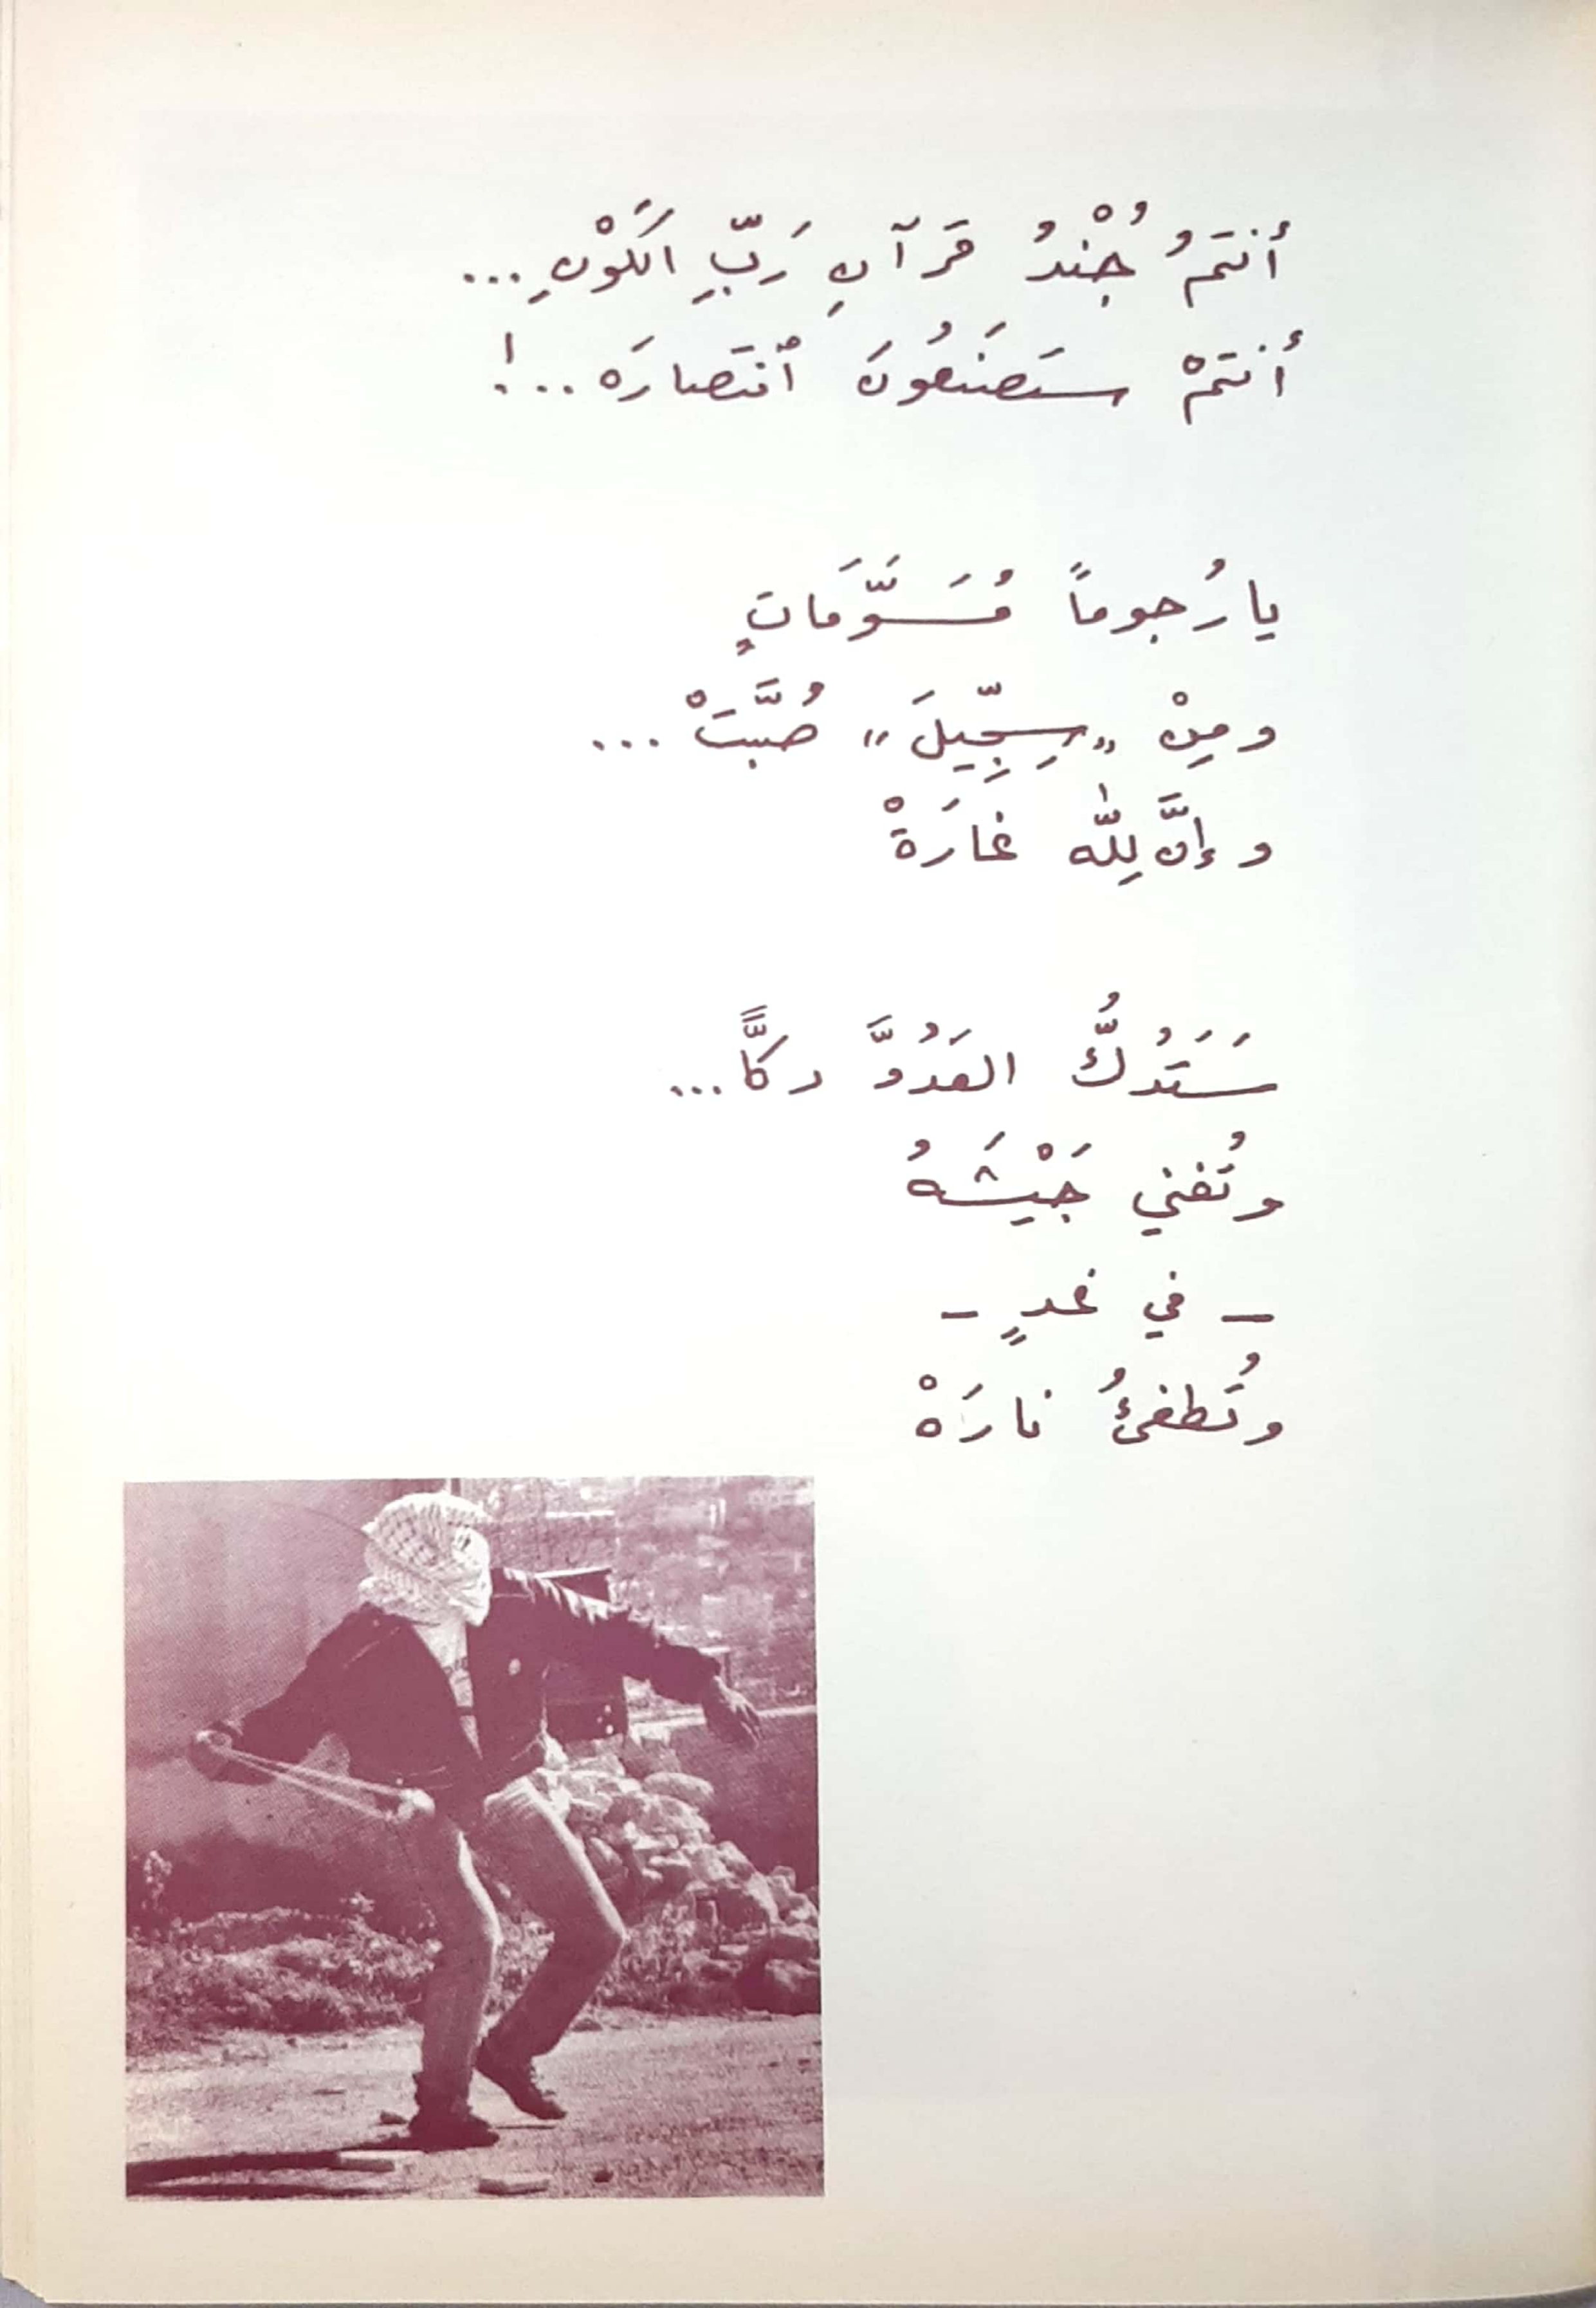 أنتمُ جُنْدُ قرآنِ رَبِّ الكَوْنِ...
أنتمْ ستَصنَعُونَ ٱنتَصارَه...!
يا رُجوماً مُسَوَّمَاتٍ
ومِنْ «سِجِّيلَ» صُبَّتْ...
وإنَّ لِلّٰه غارَةْ
سَتَدُكُّ العَدُوَّ دكًّا...
وتُفني جَيْشَهُ
- في غدٍ -
وتُطفئُ نارَهْ